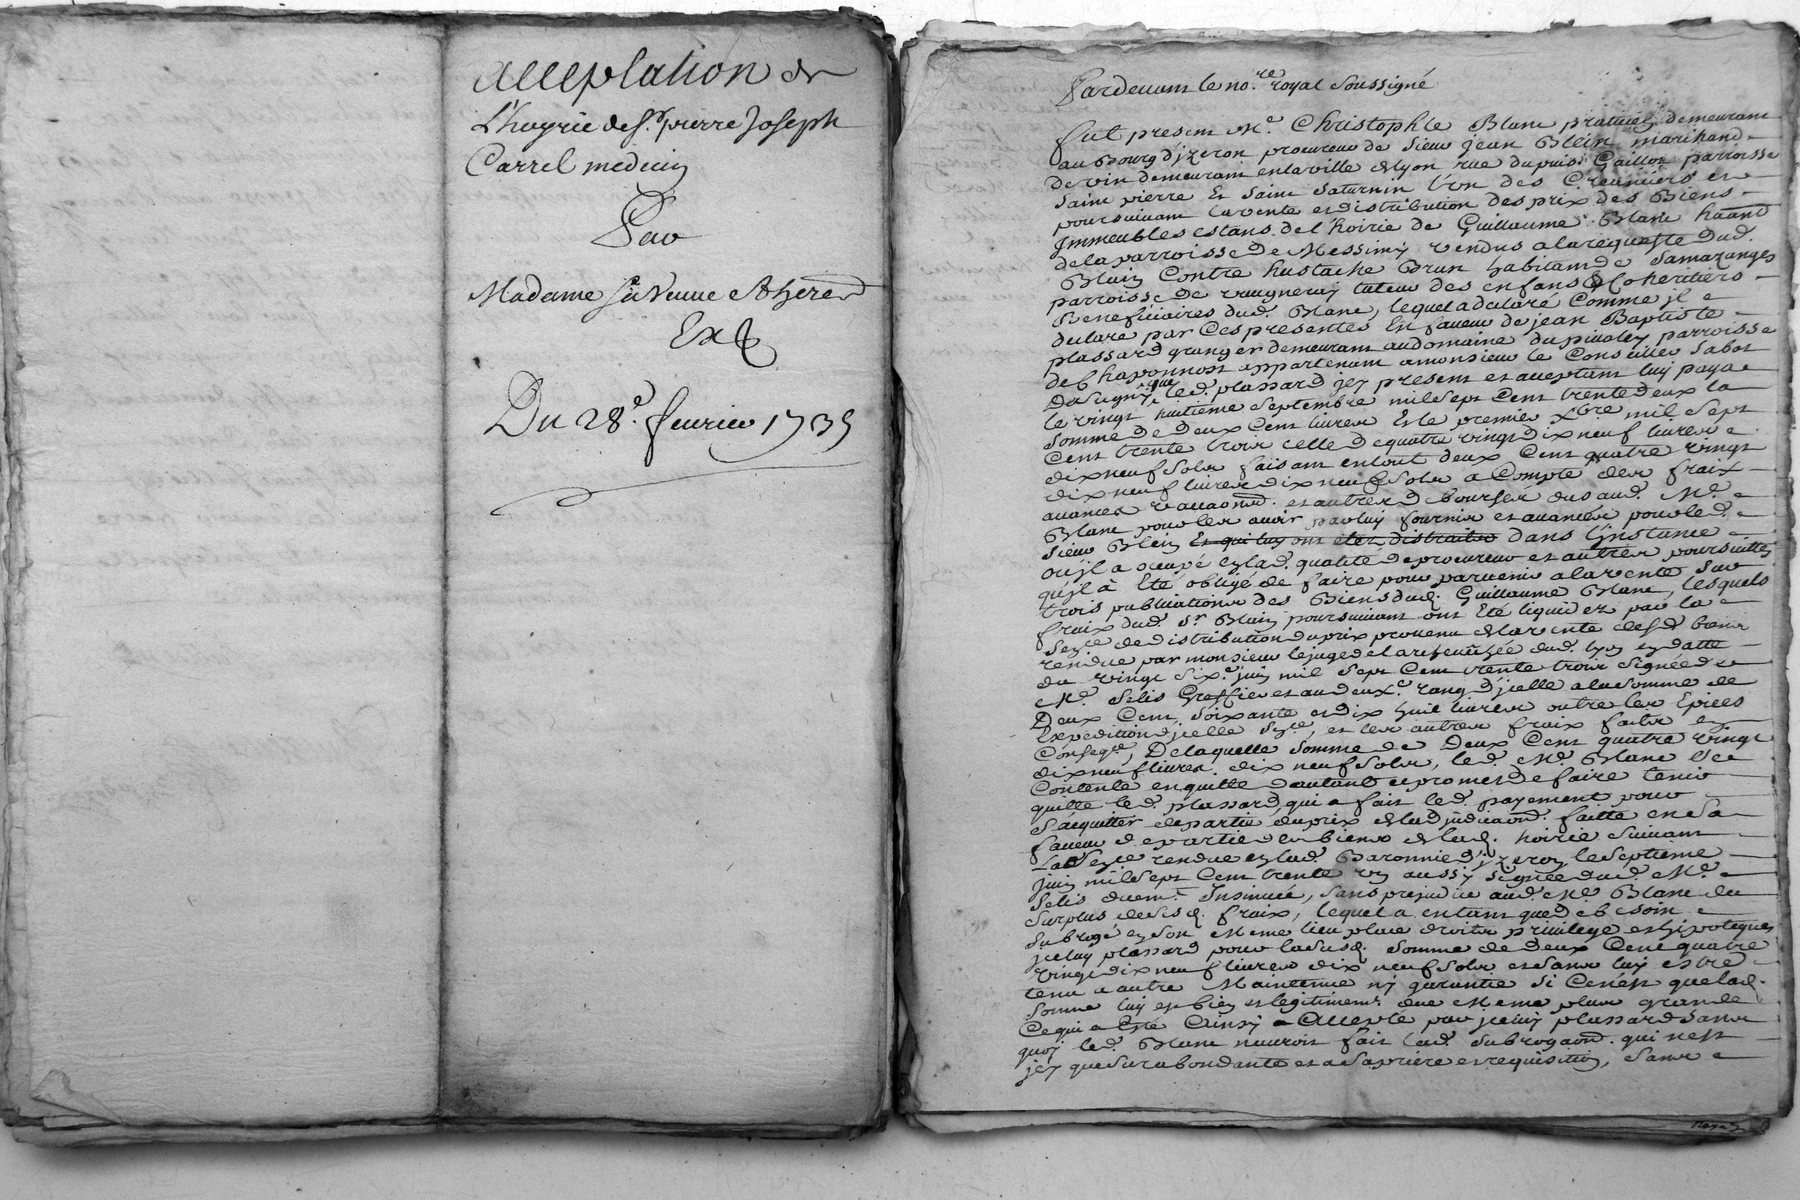 acceptation de
L'hoyrie de Sr. pierre Joseph
Carrel medecin
Par
Madame sa Veuve et here
Ex
Du 28e. fevrier 1735
Pardevant le nore. royal soussigné
fut present Me. Christophle Blanc praticien demeurant
au Bourg d'jzeron procureur de sieur jean Blein marchand
de vin demeurant en la ville de lyon rue du puis Gaillot parroisse
saint pierre et saint saturnin l'un des Creanciers et
poursuivant la vente et distribution des prix des Biens
Immeubles estans de l'hoirie de Guillaume Blanc
de la parroisse de Messimy vendus a la requeste dud.
Blein Contre Eustache Brun habitant de Samazanges
parroisse de vaugneray tuteur des enfans & Coheritiers
Beneficiaires dud. Blanc, lequel a declaré Comme jl
declare par Ces presentes En faveur de jean Baptiste
plassard granger demeurant au domaine du parroisse
de Chaponnost appartenant a monsieur le Conseiller Sabot
que led. plassard jcy present et acceptant luy paya
le vingt huitieme septembre mil sept Cent trente deux la
somme de deux Cent livres Et le premier Xbre mil sept
Cent trente trois celle de quatre vingt dix neuf livres
dix neuf sols faisant en tout deux Cent quatre vingt
dix neuf livres dix neuf sols a Compte des fraix
avances et autres debourses dus aud. Me.
Blanc pour les avoir par luy fournis et avancés pour led.
sieur Blein Et qui luy ont eté distraits dans L'jnstance
ou jl a occupé en lad. qualité de procureur et autres poursuittes
qu'jl à Eté obligé de faire pour parvenir a la vente sur
trois publications des Biens dud. Guillaume Blanc, lesquels
fraix dud. Sr. Blein poursuivant ont Eté liquidez par la
Sence de distribution du prix provenu de la vente desd. biens
rendue par monsieur le juge de l'archeveché dud. lyon en datte
du vingt sixe. juin mil sept Cent trente trois signée de
Me. Selis Greffier et au deuxe. rang d'jcelle a la somme de
Deux Cent soixante et dix huit livres outre les Epices
Expedition d'jcelle Sence, et les autres fraix faits en
Conseqce. De laquelle somme de Deux Cent quatre vingt
dix neuf livres dix neuf sols, led. Me. Blanc s'est
Contenté en quitte d'autant et promet de faire tenir
quitte led. plassard, qui a fait led. payement pour
s'acquitter de partie du prix de l'adjudicaon. faitte en sa
faveur de partie des biens de lad. hoirie suivant
La Sence rendue en lad. Baronnie d'jzeron le septieme
juin mil sept Cent trente un aussy signée dud. Me.
Selis duemt. Insinuée, sans prejudice aud. Me. Blanc du
surplus desd. fraix, lequel a en tant que de besoin
subrogé en son Meme lieu place droits privilege et hipoteques
jceluy plassard pour lasusd. somme de deux Cent quatre
vingt dix neuf livres dix neuf sols et sans luy estre
tenu d autre Maintenue ny garantie si Cen'est que lad.
somme luy est bien et legitimemt. due Meme plus grande
Ce qui a Eté Ainsy Accepté par jceluy plassard sans
quoy led. Blanc n'auroit fait lad. subrogaon. qui n'est
jcy que surabondante et a sa priere et requisition, sans